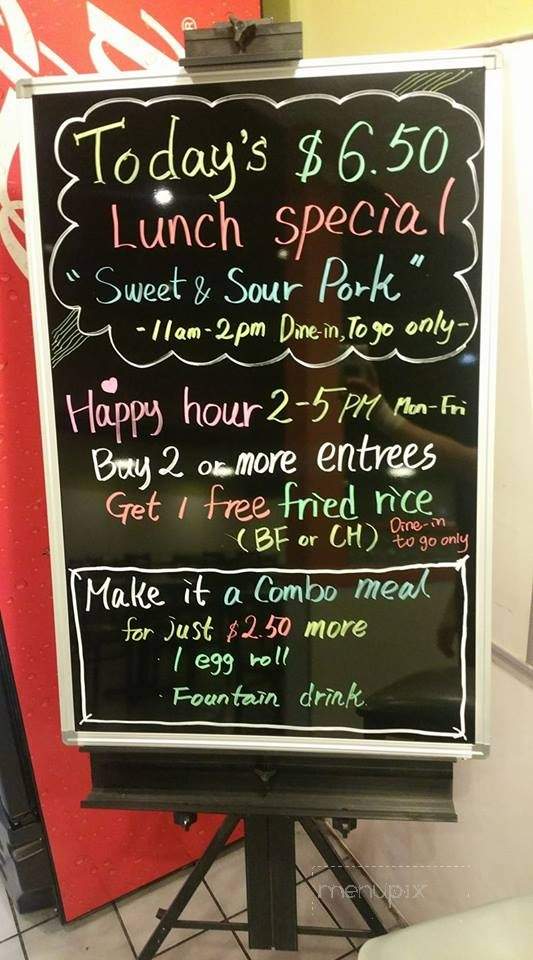 Today's $6.50
Lunch special
"Sweet & Sour Pork"
-11am-2pm Dine-in, To go only-
Happy hour 2-5PM Mon-Fri
Buy 2 or more entrees
Get 1 free fried rice
(BF or CH) Dine-in
to go only
Make it a Combo meal
for just $2.50 more
· 1 egg roll
· Fountain drink
menupix